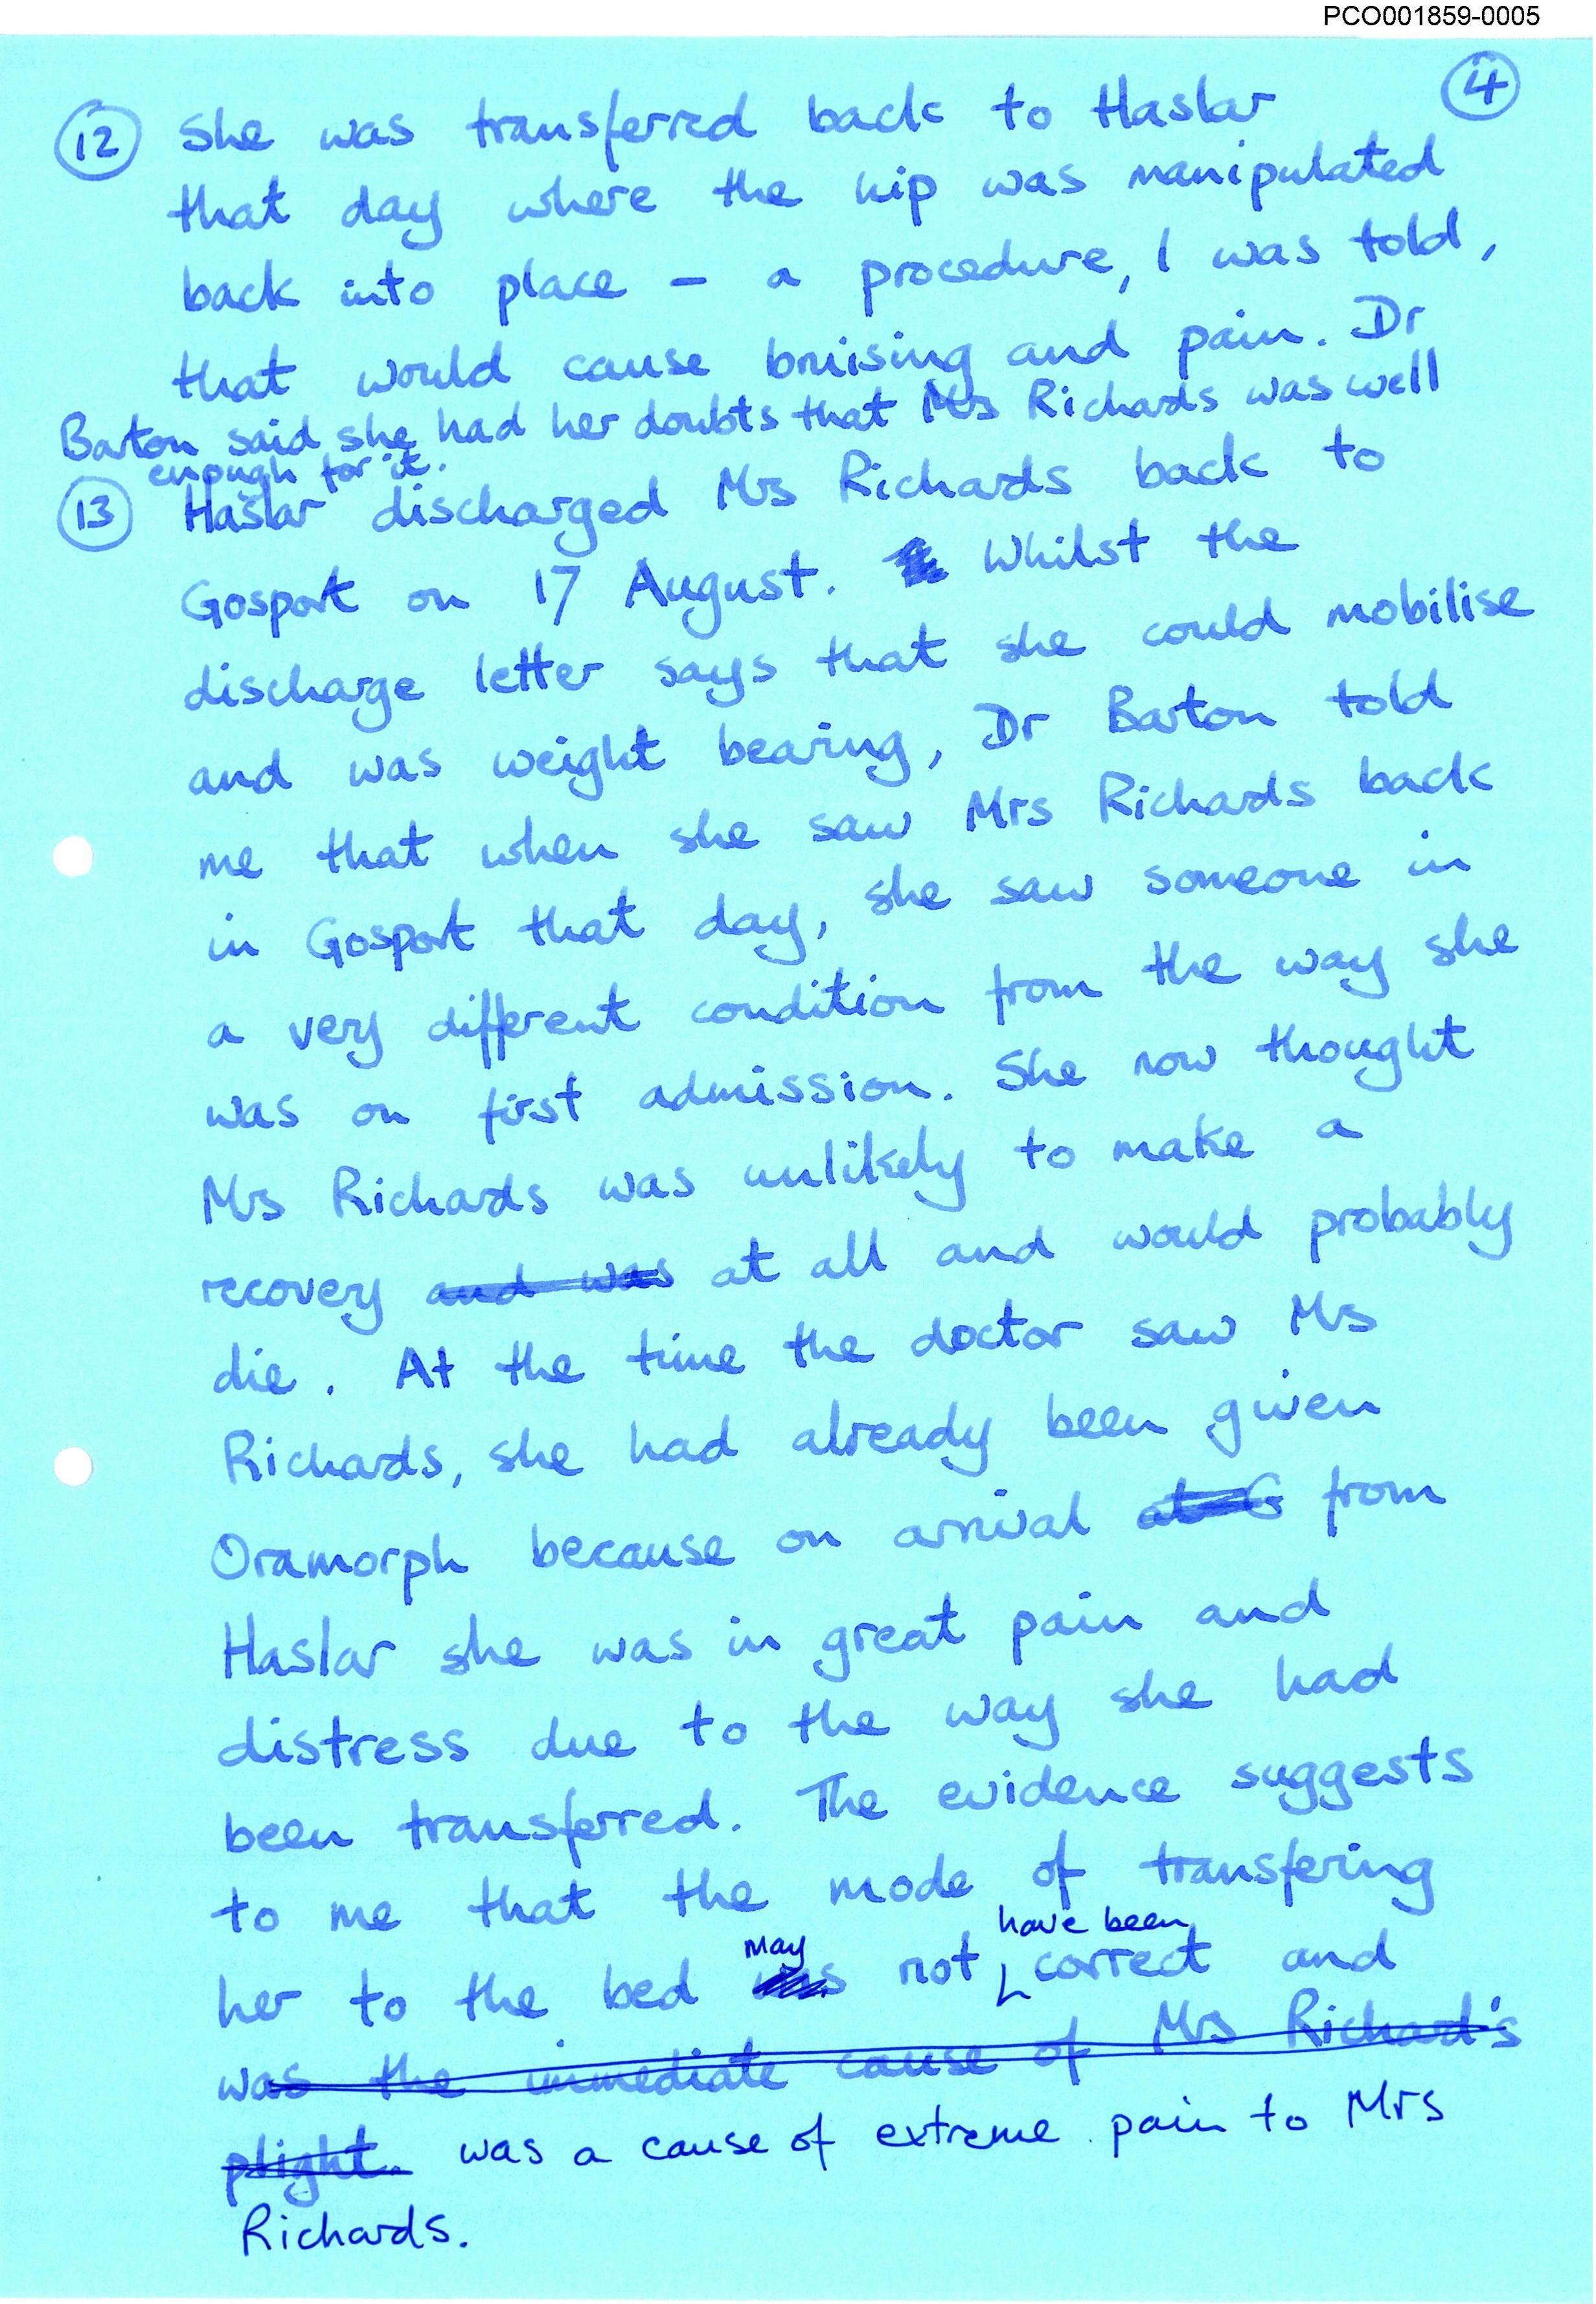 PCO001859-0005
4
12 She was transferred back to Haslar
that day where the hip was manipulated
back into place – a procedure, I was told,
that would cause bruising and pain. Dr
Barton said she had her doubts that Mrs Richards was well
enough for it.
13 Haslar discharged Mrs Richards back to
Gosport on 17 August. Whilst the
discharge letter says that she could mobilise
and was weight bearing, Dr Barton told
me that when she saw Mrs Richards back
in Gosport that day, she saw someone in
a very different condition from the way she
was on first admission. She now thought
Mrs Richards was unlikely to make a
recovery and was at all and would probably
die. At the time the doctor saw Mrs
Richards, she had already been given
Oramorph because on arrival at G from
Haslar she was in great pain and
distress due to the way she had
been transferred. The evidence suggests
to me that the mode of transfering
have been
may
her to the bed was not correct and
was the immediate cause of Mrs Richard's
plight. was a cause of extreme pain to Mrs
Richards.